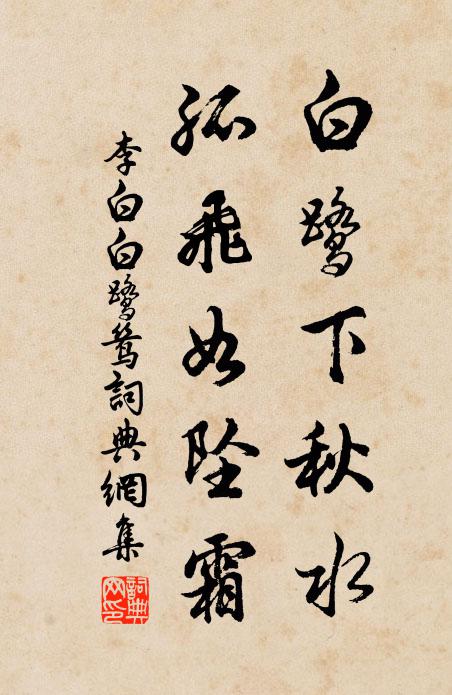 白鹭下秋水
孤飛如坠霜
李白白鹭鸶詞典網集
詞典網印